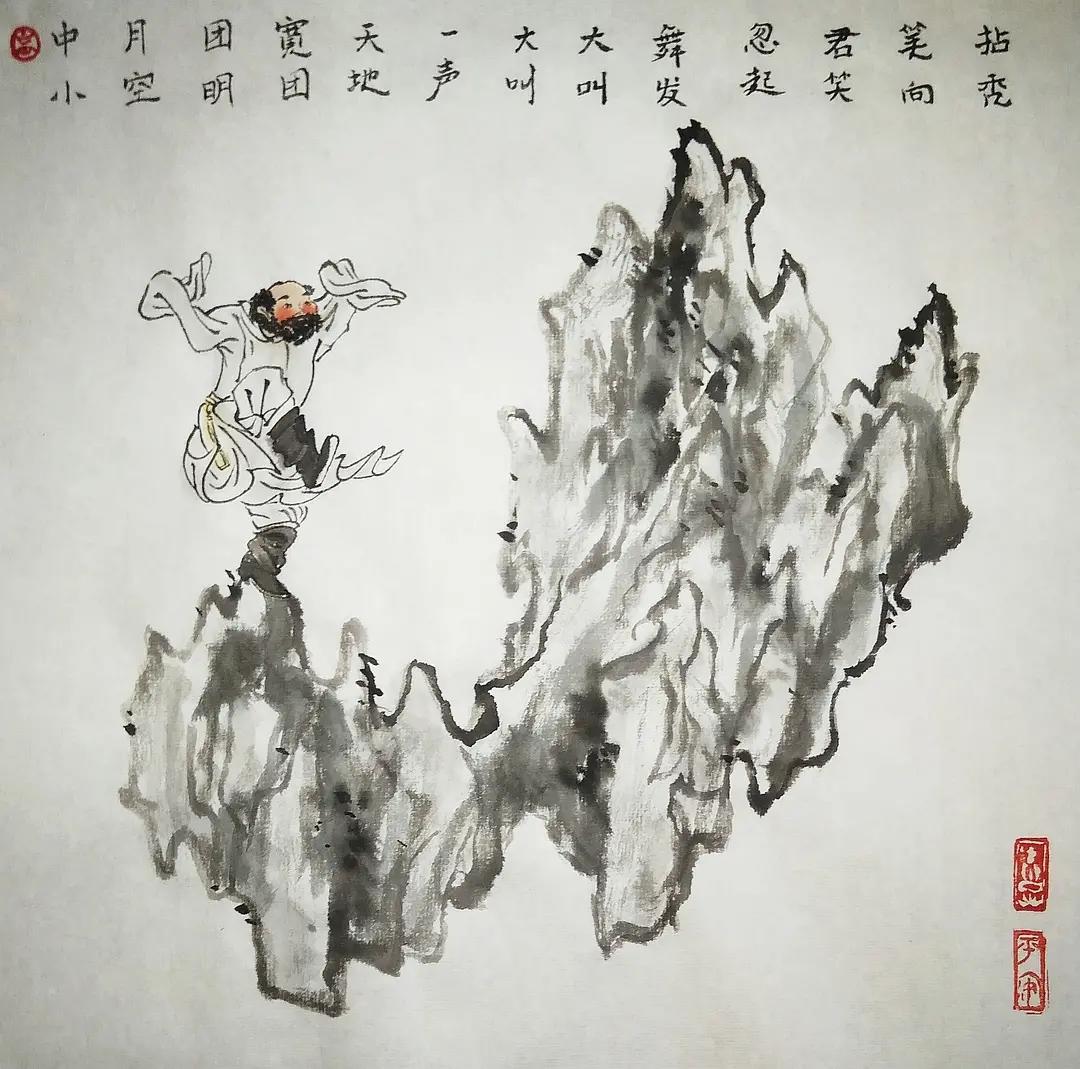 拈秃
笔向
君笑
忽起
舞发
大叫
大叫
一声
天地
寬团
团明
月空
中小